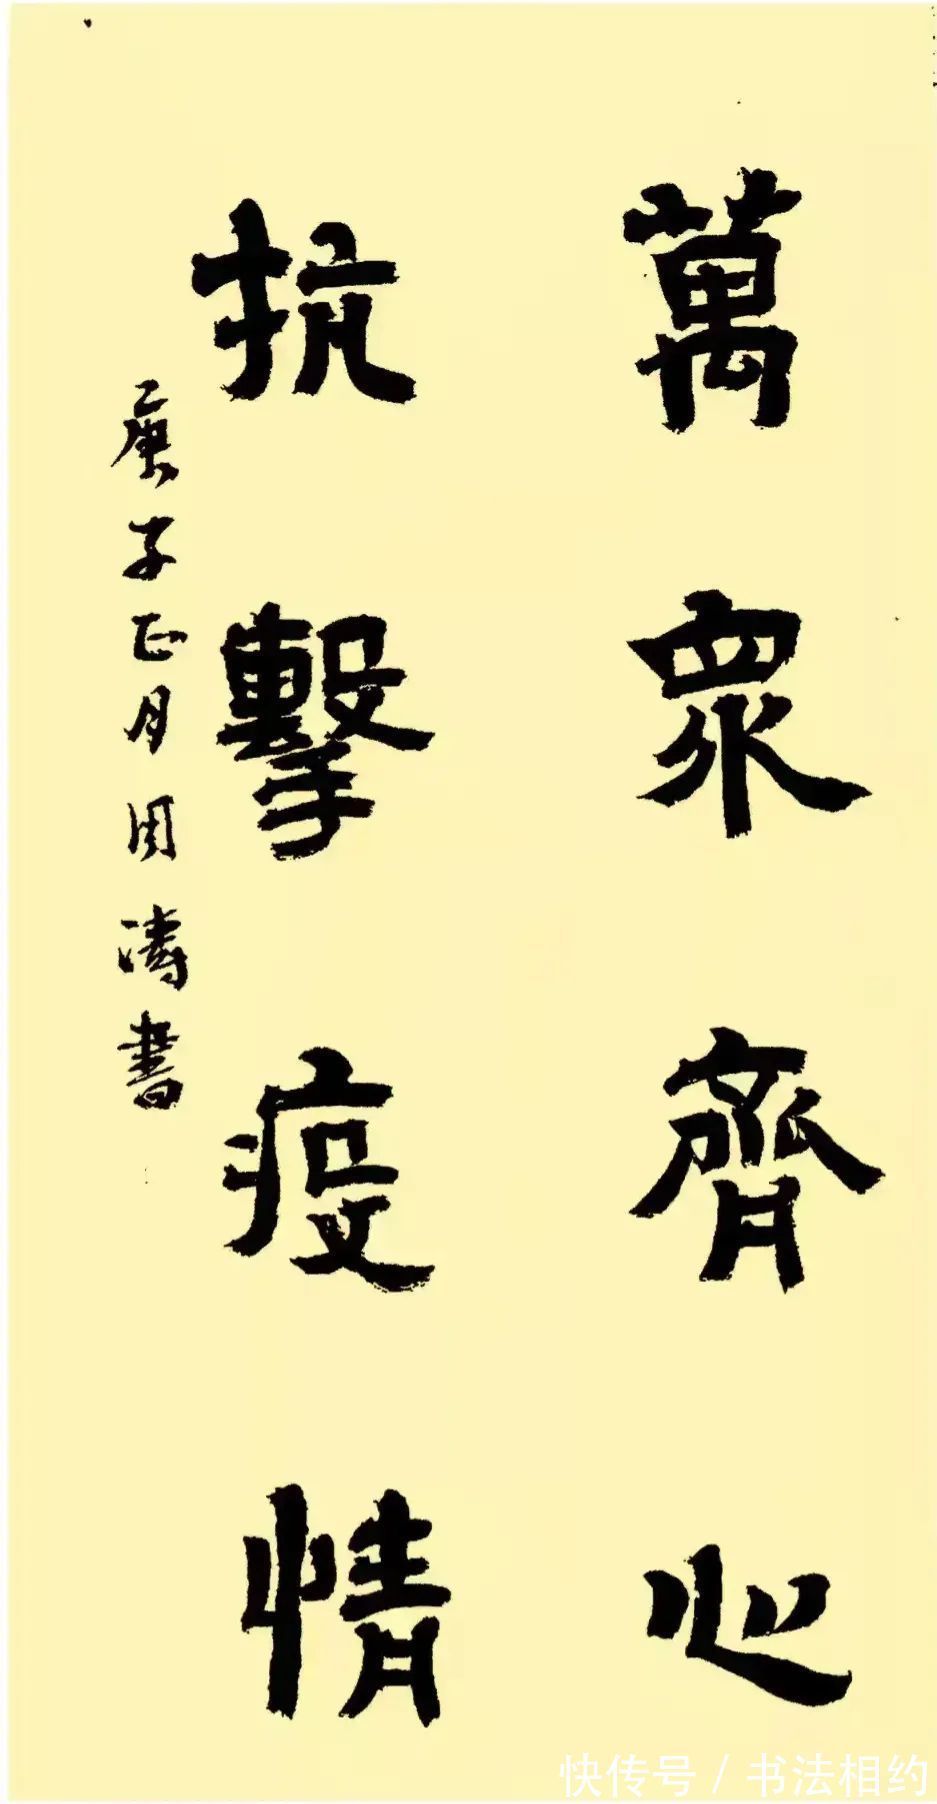 萬眾齊心
抗擊疫情
庚子正月周濤書
快传号 / 书法相约